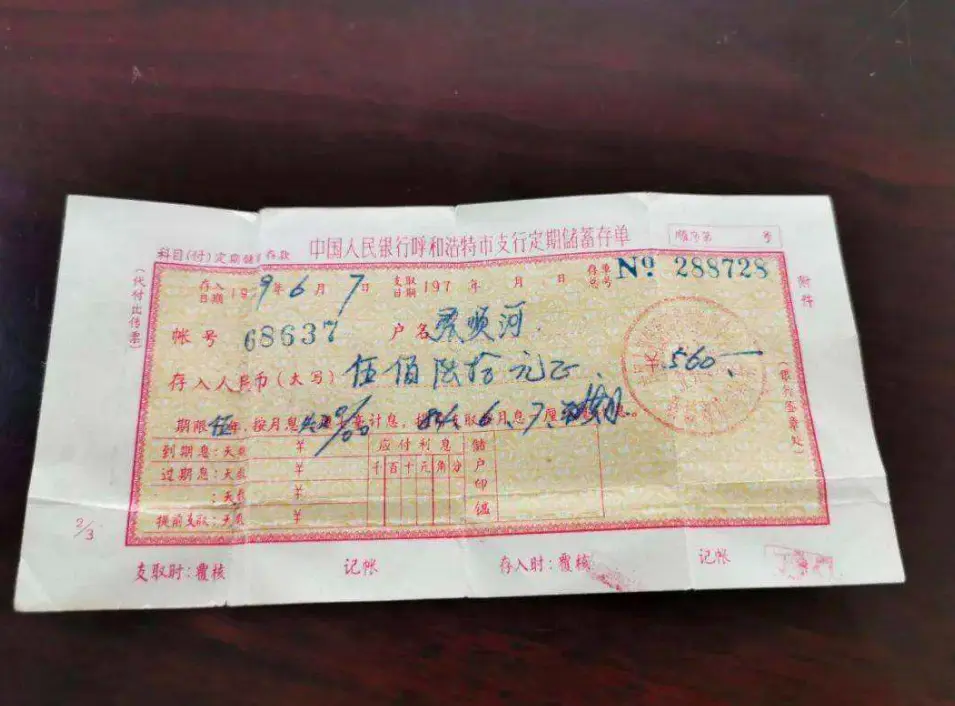 中国人民银行呼和浩特市支行定期储蓄存单
顺序第 号
科目(付)定期储蓄存款
存入日期1979年6月7日 支取日期197 年 月 日 存单兑号 Nº 288728
帐号 68637 户名 顺河
存入人民币(大写) 伍佰陆拾元正 560.一
期限伍年,按月息 计息, 84.6.7 到期
到期息:天数 ¥ 应付利息 储户印鉴
过期息:天数 ¥ 千百十元角分
:天数 ¥
提前支取:天数 ¥
(代付出传票)
附件
(银行签章处)
2/3
支取时:覆核 记帐 存入时:覆核 记帐